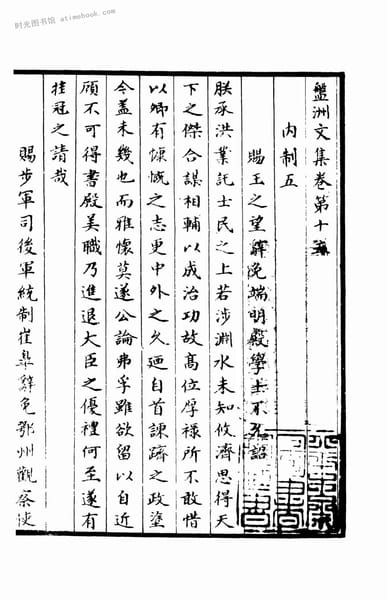 时光图书馆 atimebook.com
盤洲文集卷第十五
内制五
賜王之望辭免端明殿學士不允詔
朕承洪業託士民之上若涉淵水未知攸濟思得天
下之傑合謀相輔以成治功故髙位厚禄所不敢惜
以卿有慷慨之志更中外之久廼自首諫躋之政塗
今盖未幾也而雅懷莫遂公論弗孚雖欲留以自近
顧不可得書殿美職乃進退大臣之優禮何至遂有
挂冠之請哉
賜步軍司後軍統制崔皐辭免鄂州觀察使